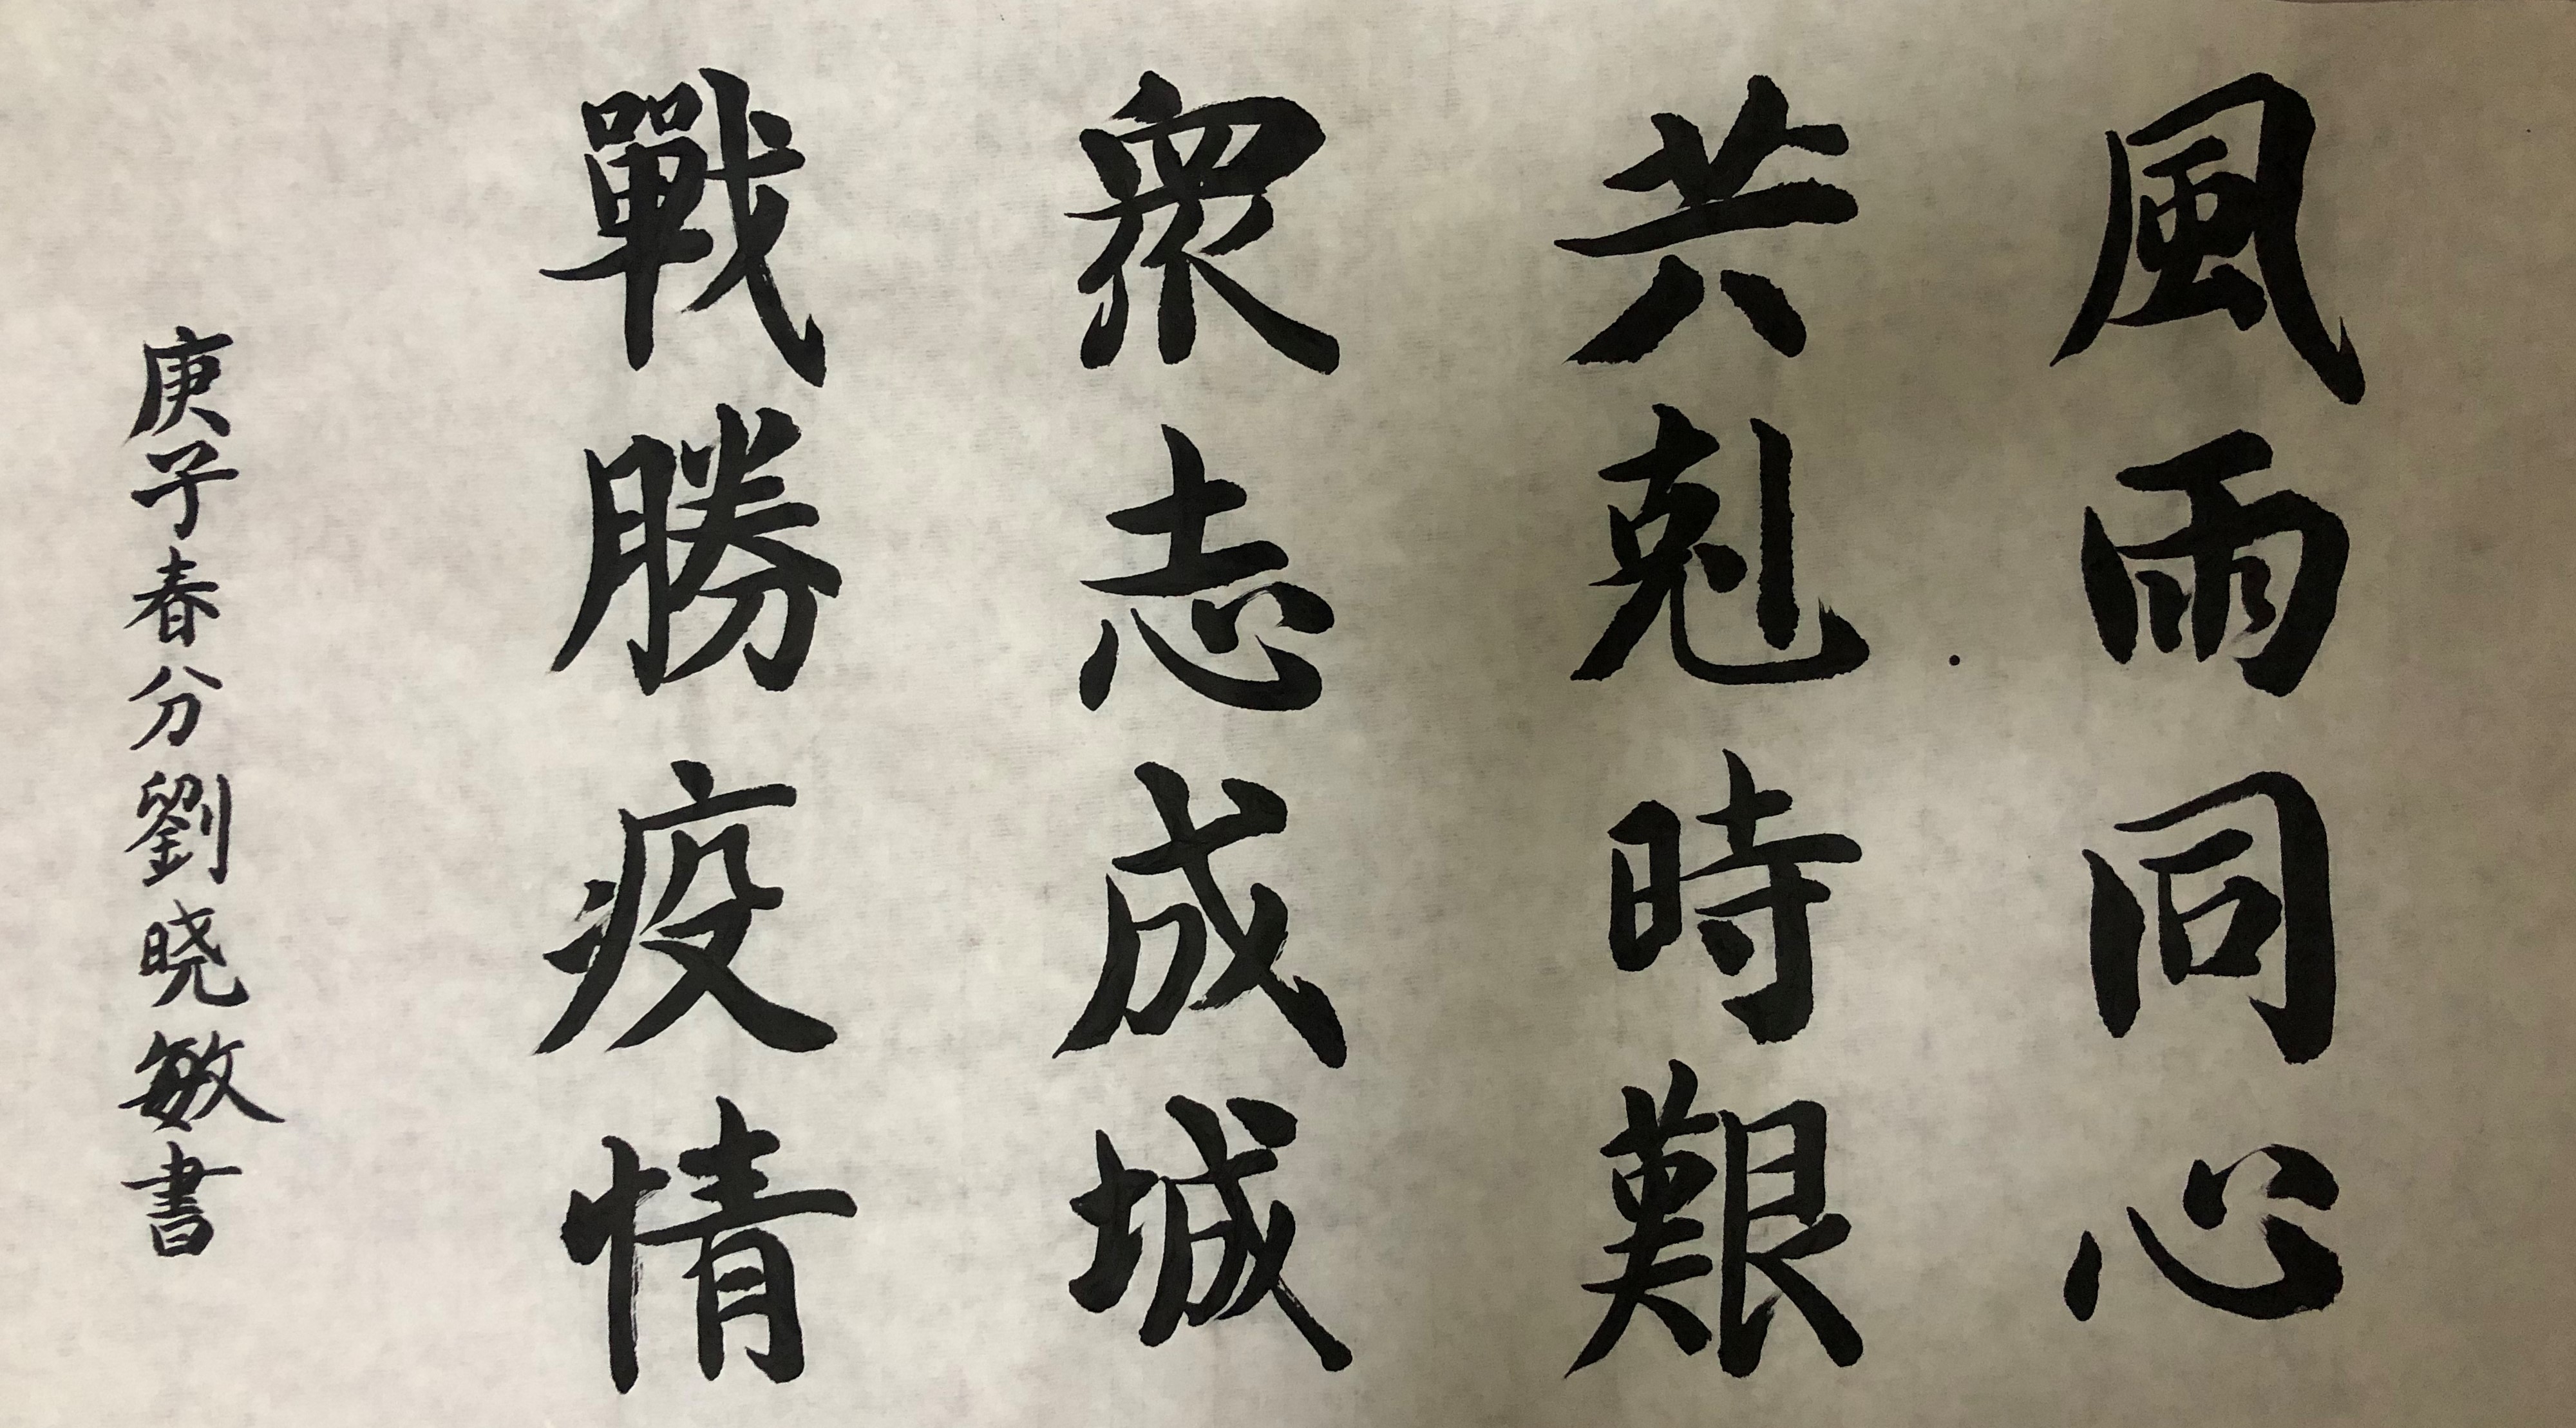 風雨同心
共剋時艱
眾志成城
戰勝疫情
庚子春分劉晓敏書